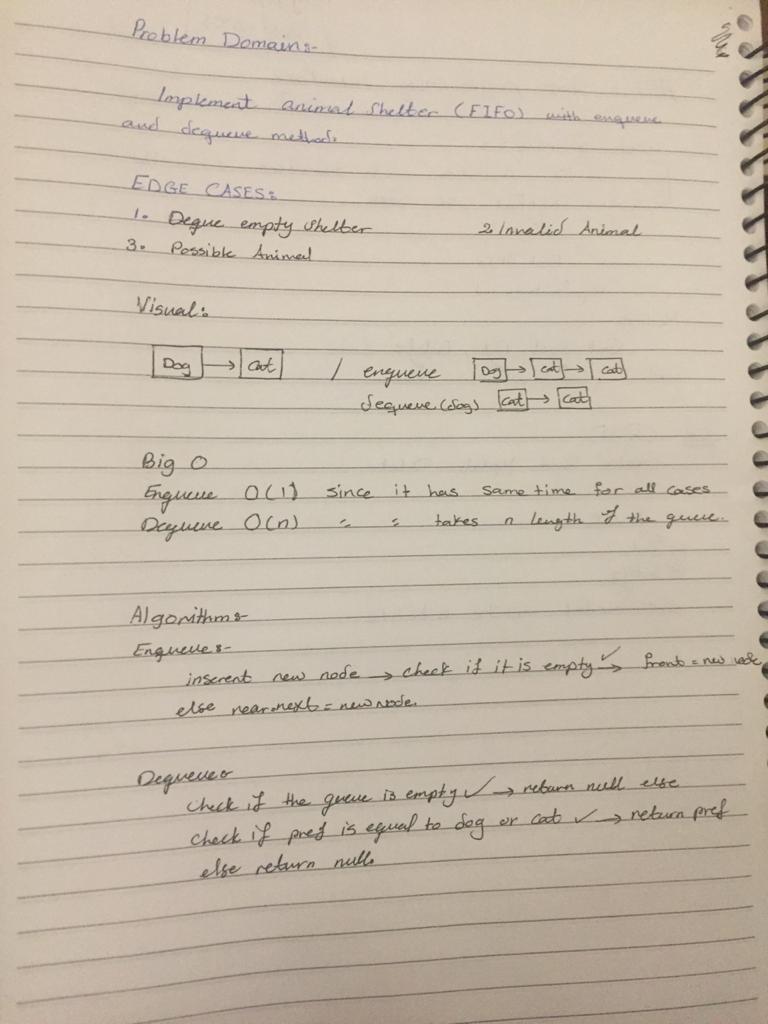 Problem Domain:-
Implement animal shelter (FIFO) with enqueue
and dequeue methods.
EDGE CASES:
1. Deque empty shelter 2 Invalid Animal
3. Possible Animal
Visual:
Dog → Cat / enqueue Dog → Cat → Cat
dequeue (dog) Cat → Cat
Big O
Enqueue O(1) since it has same time for all cases
Dequeue O(n) " " takes n length of the queue.
Algorithm:-
Enqueue:-
new node → check if it is empty ✓ → front = new node
else rear.next = new node.
Dequeue:
check if the queue is empty ✓ → return null else
check if pref is equal to dog or cat ✓ → return pref
else return null.